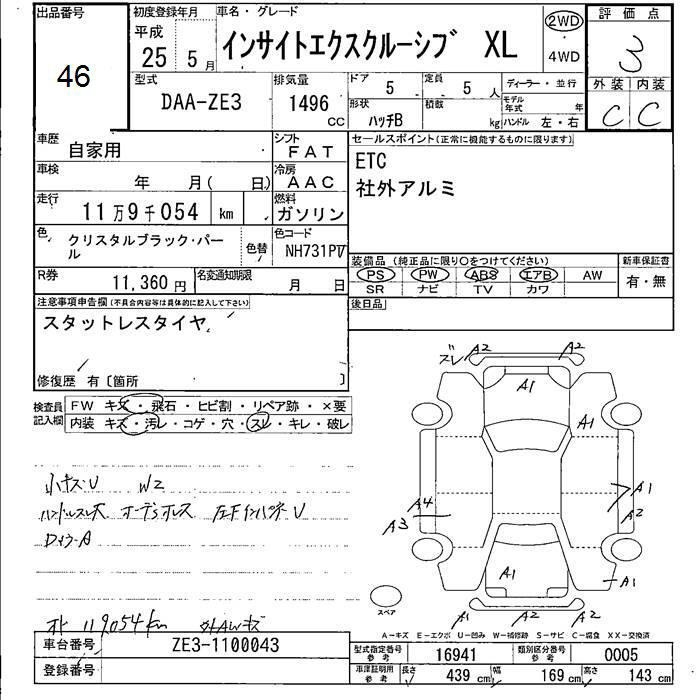 出品番号
46
初度登録年月
平成
25 5月
車名・グレード
インサイトエクスクルーシブ XL
2WD
4WD
評価点
3
外装 内装
C C
型式
DAA-ZE3
排気量
1496
CC
ドア
5
定員
5人
形状
ハッチB
積載
kg
ディーラー・並行
モデル年式 年
ハンドル 左・右
車歴
自家用
シフト
FAT
車検
年 月( 日)
冷房
AAC
走行
11万9千054 km
燃料
ガソリン
色
クリスタルブラック・パール
色替
色コード
NH731PV
R券
11,360円
名変通知期限
月 日
セールスポイント(正常に機能するものに限ります)
ETC
社外アルミ
装備品 (純正品に限り○をつけてください)
PS PW ABS エアB AW
SR ナビ TV カワ
新車保証書
有・無
後日品
注意事項申告欄(不具合内容等は具体的に記入して下さい)
スタットレスタイヤ
修復歴 有〔箇所 〕
検査員記入欄
FW キズ・飛石・ヒビ割・リペア跡・×要
内装 キズ・汚レ・コゲ・穴・スレ・キレ・破レ
小キズU W2
ハンドルスレ大 オーディオレス 左Fインパネ U
Dドラ-A
オド 119054km 外AWキズ
ズレ A2 A2
A1
A1
A4
A3
A1
A2
A1
A1
A1 A2 A2
スペア
A-キズ E-エクボ U-凹み W-補修跡 S-サビ C-腐食 XX-交換済
車台番号
ZE3-1100043
登録番号
型式指定番号
参考
16941
類別区分番号
参考
0005
車庫証明用
参考
長さ 439 cm 幅 169 cm 高さ 143 cm